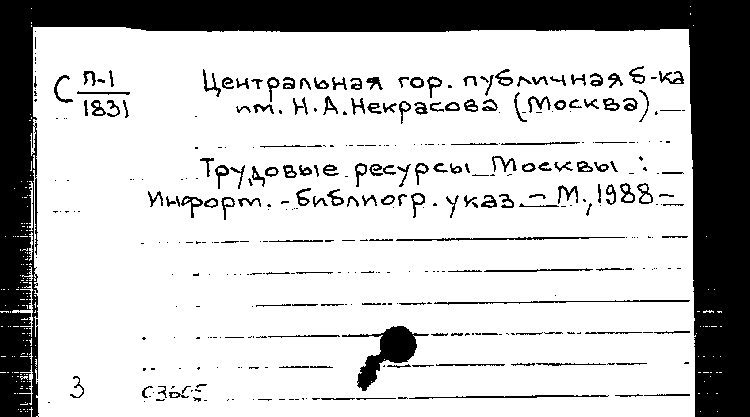 С П-1
1831
Центральная гор. публичная б-ка
им. Н.А.Некрасова (Москва).
Трудовые ресурсы Москвы :
Информ. -библиогр. указ. - М., 1988 -
3